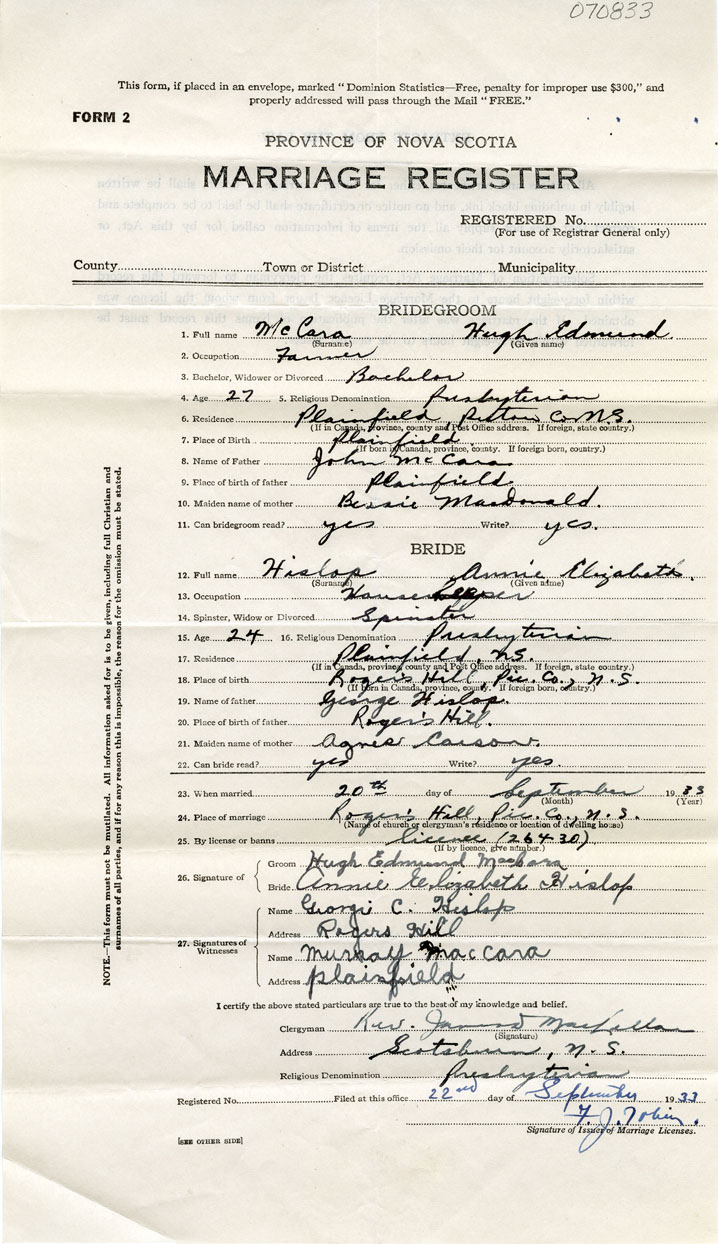 070833
This form, if placed in an envelope, marked "Dominion Statistics—Free, penalty for improper use $300," and
properly addressed will pass through the Mail "FREE."
FORM 2
PROVINCE OF NOVA SCOTIA
MARRIAGE REGISTER
REGISTERED No.
(For use of Registrar General only)
County Town or District Municipality
BRIDEGROOM
1. Full name McCara Hugh Edmund
(Surname) (Given name)
2. Occupation Farmer
3. Bachelor, Widower or Divorced Bachelor
4. Age 27 5. Religious Denomination Presbyterian
6. Residence Plainfield, Pictou Co. N.S.
(If in Canada, province, county and Post Office address. If foreign, state country.)
7. Place of Birth Plainfield
(If born in Canada, province, county. If foreign born, country.)
8. Name of Father John McCara
9. Place of birth of father Plainfield
10. Maiden name of mother Bessie Macdonald.
11. Can bridegroom read? yes Write? yes.
BRIDE
12. Full name Hislop Annie Elizabeth
(Surname) (Given name)
13. Occupation Housekeeper
14. Spinster, Widow or Divorced Spinster
15. Age 24 16. Religious Denomination Presbyterian
17. Residence Plainfield, N.S.
(If in Canada, province, county and Post Office address. If foreign, state country.)
18. Place of birth Roger's Hill, Pic. Co., N.S.
(If born in Canada, province, county. If foreign born, country.)
19. Name of father George Hislop.
20. Place of birth of father Roger's Hill.
21. Maiden name of mother Agnes Carson.
22. Can bride read? yes Write? yes.
23. When married 20th day of September 1933
(Month) (Year)
24. Place of marriage Roger's Hill, Pic. Co., N.S.
(Name of church or clergyman's residence or location of dwelling house)
25. By license or banns licence (26430)
(If by licence, give number.)
26. Signature of
Groom Hugh Edmund MacCara
Bride Annie Elizabeth Hislop
27. Signatures of Witnesses
Name George C. Hislop
Address Rogers Hill
Name Murray MacCara
Address Plainfield
I certify the above stated particulars are true to the best of my knowledge and belief.
Clergyman Rev.
(Signature)
Address Scotsburn, N.S.
Religious Denomination Presbyterian
Registered No. Filed at this office 22nd day of September 1933
F. J. Tobin.
Signature of Issuer of Marriage Licenses.
[SEE OTHER SIDE]
NOTE.—This form must not be mutilated. All information asked for is to be given, including full Christian and
surnames of all parties, and if for any reason this is impossible, the reason for the omission must be stated.